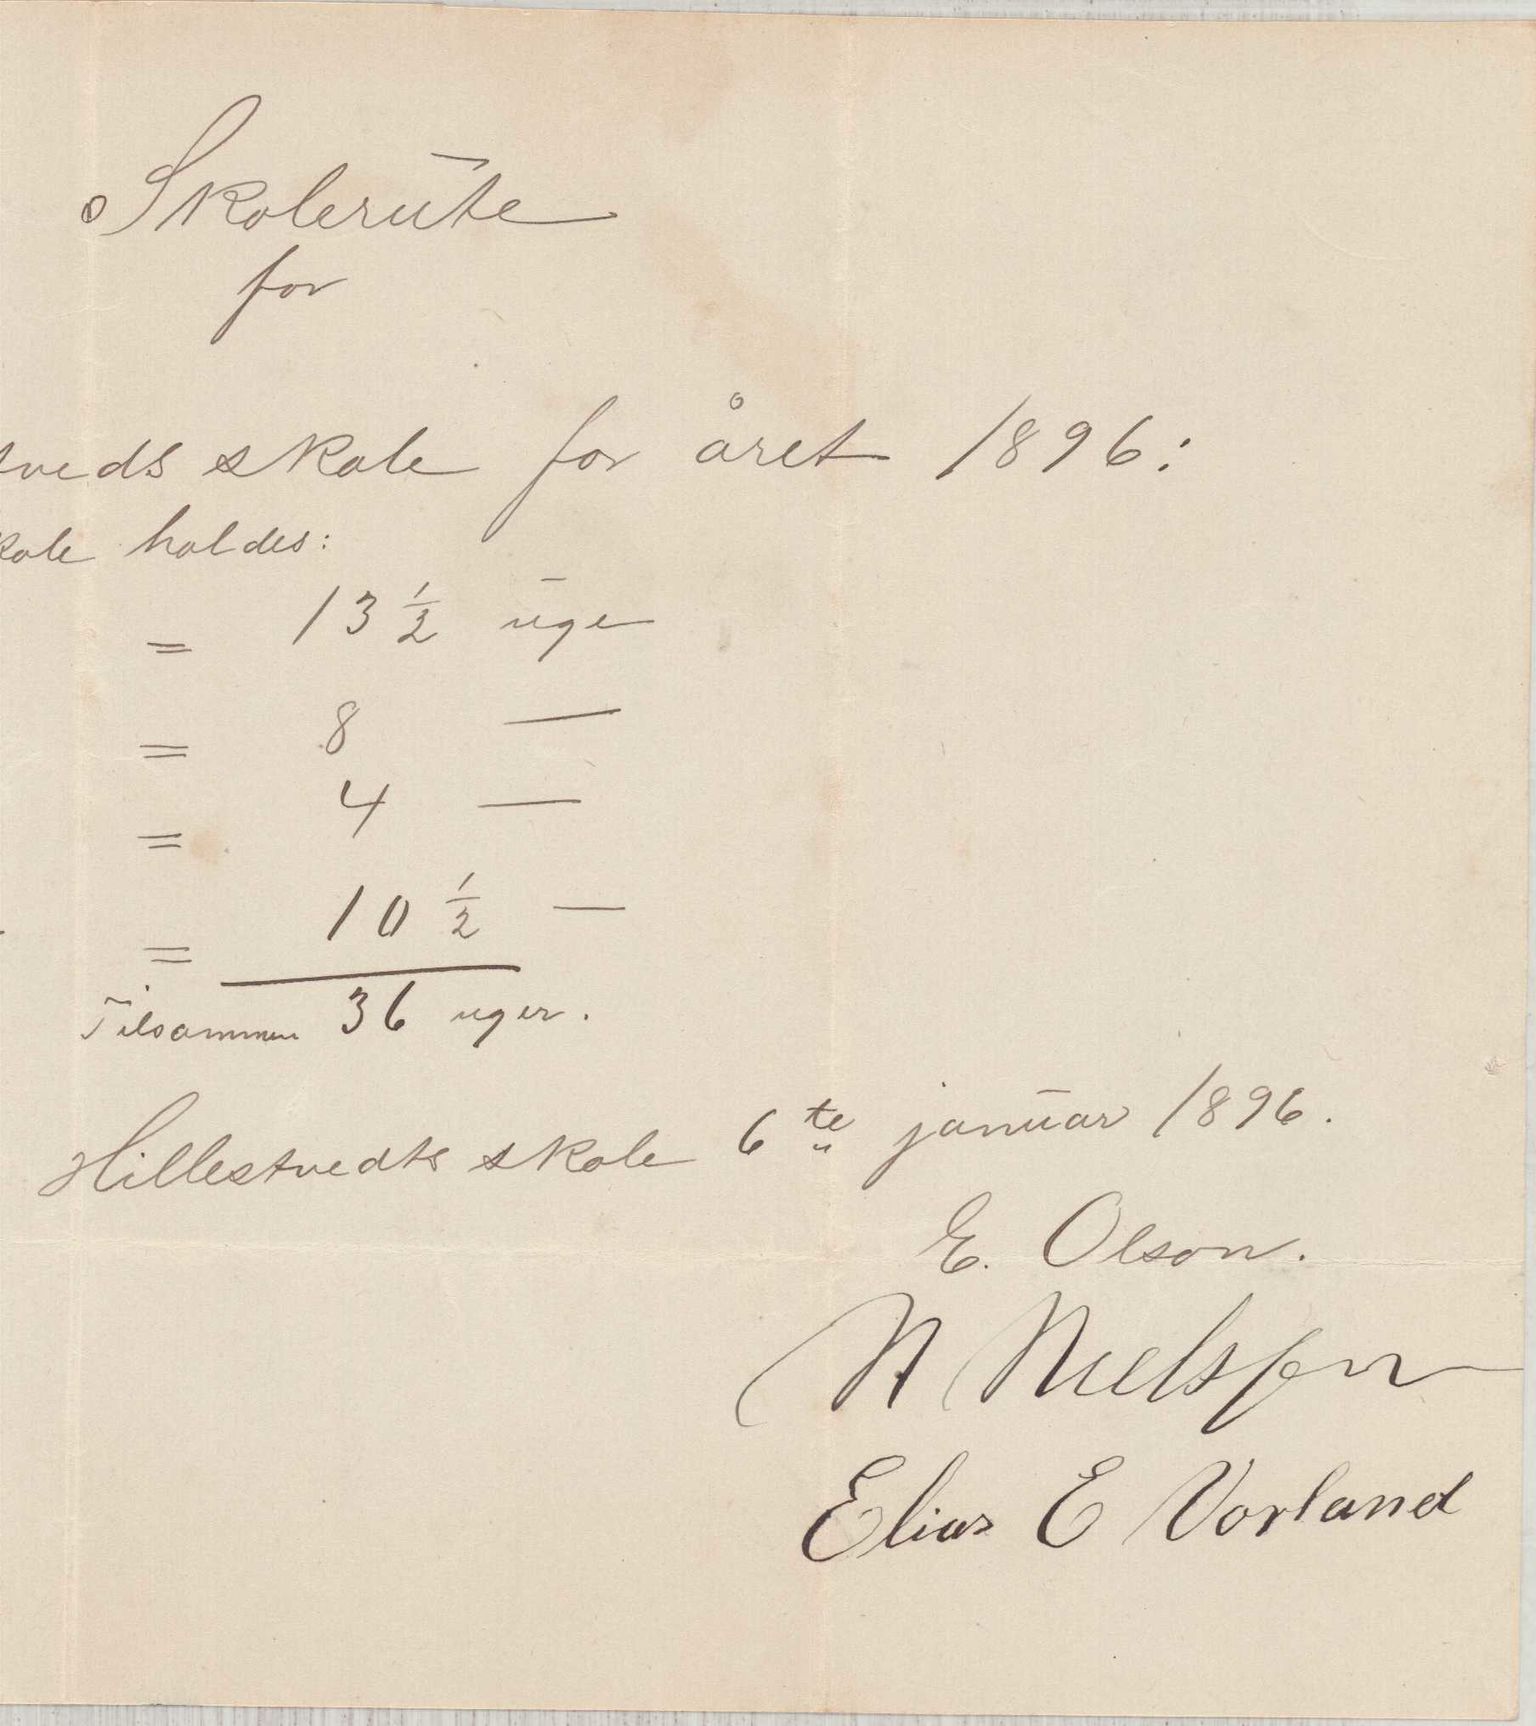 Skolerute
for
tveds skole for året 1896:
kole holdes:
= 13 1/2 uge
= 8 —
= 4 —
= 10 1/2 —
Tilsammen 36 uger.
Hillestvedts skole 6te januar 1896.
E. Olson.
N Nielssen
Elias E Vorland